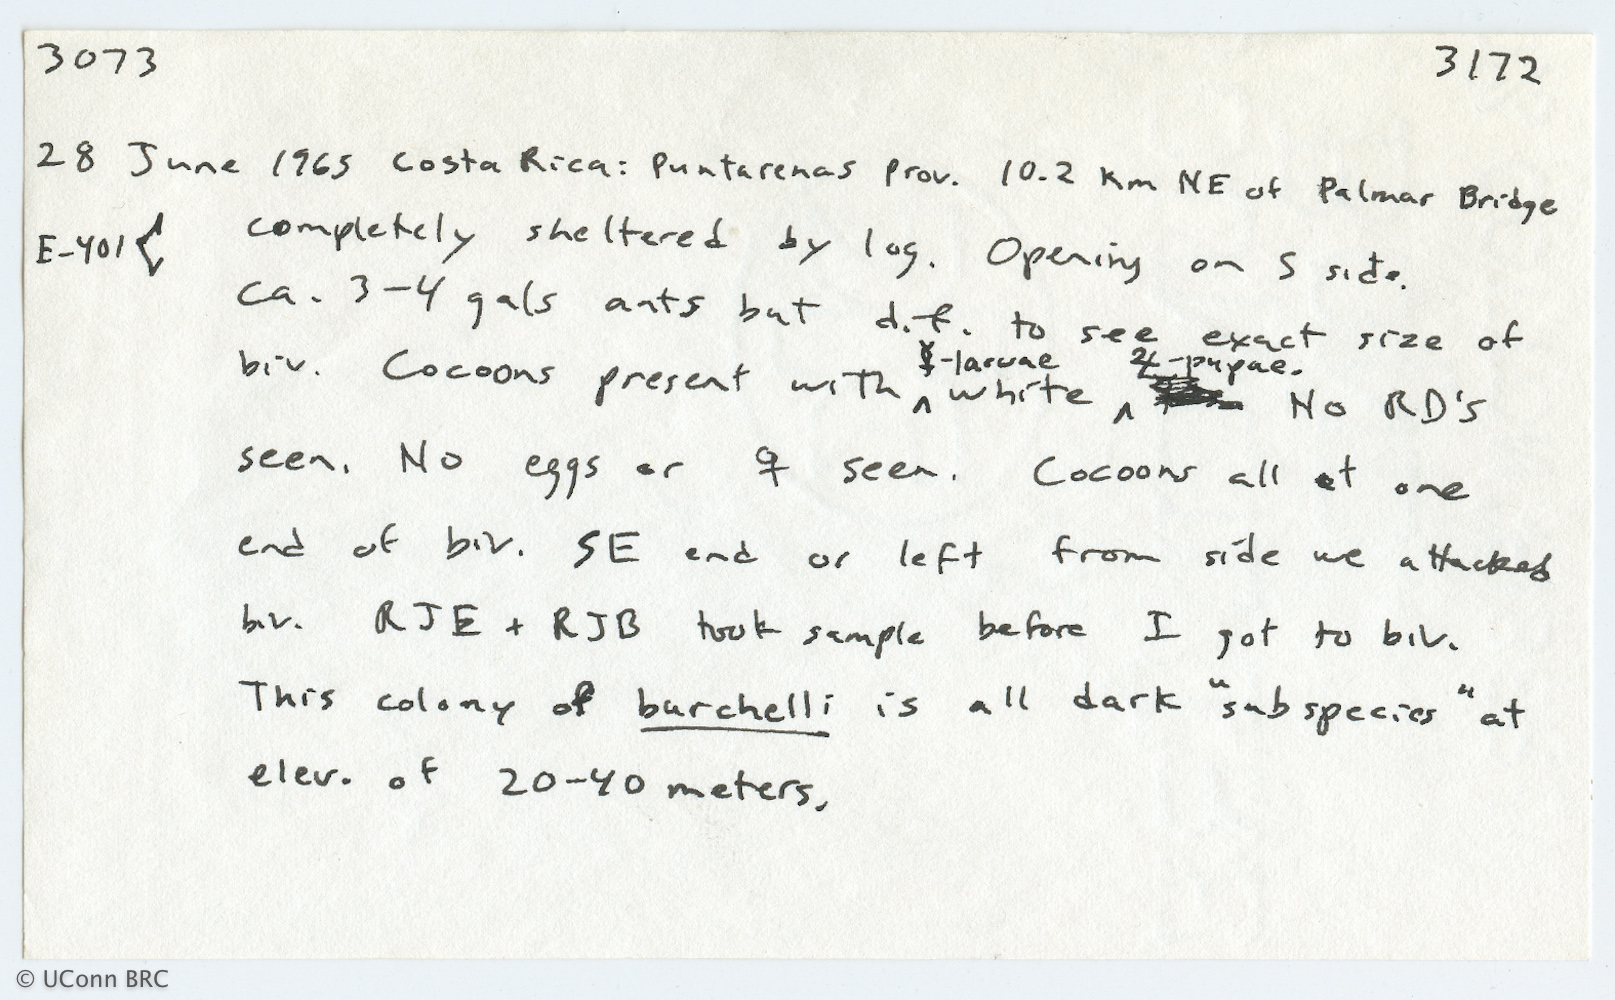 3073 3172
28 June 1965 Costa Rica: Puntarenas Prov. 10.2 Km NE of Palmar Bridge
E-401 { completely sheltered by log. Opening on S side.
ca. 3-4 gals ants but dif. to see exact size of
☿-larvae ☿-pupae.
biv. Cocoons present with ^ white ^ No RD's
seen. No eggs or ♀ seen. Cocoons all at one
end of biv. SE end or left from side we attacked
biv. RJE + RJB took sample before I got to biv.
This colony of burchelli is all dark "subspecies" at
elev. of 20-40 meters.
© UConn BRC